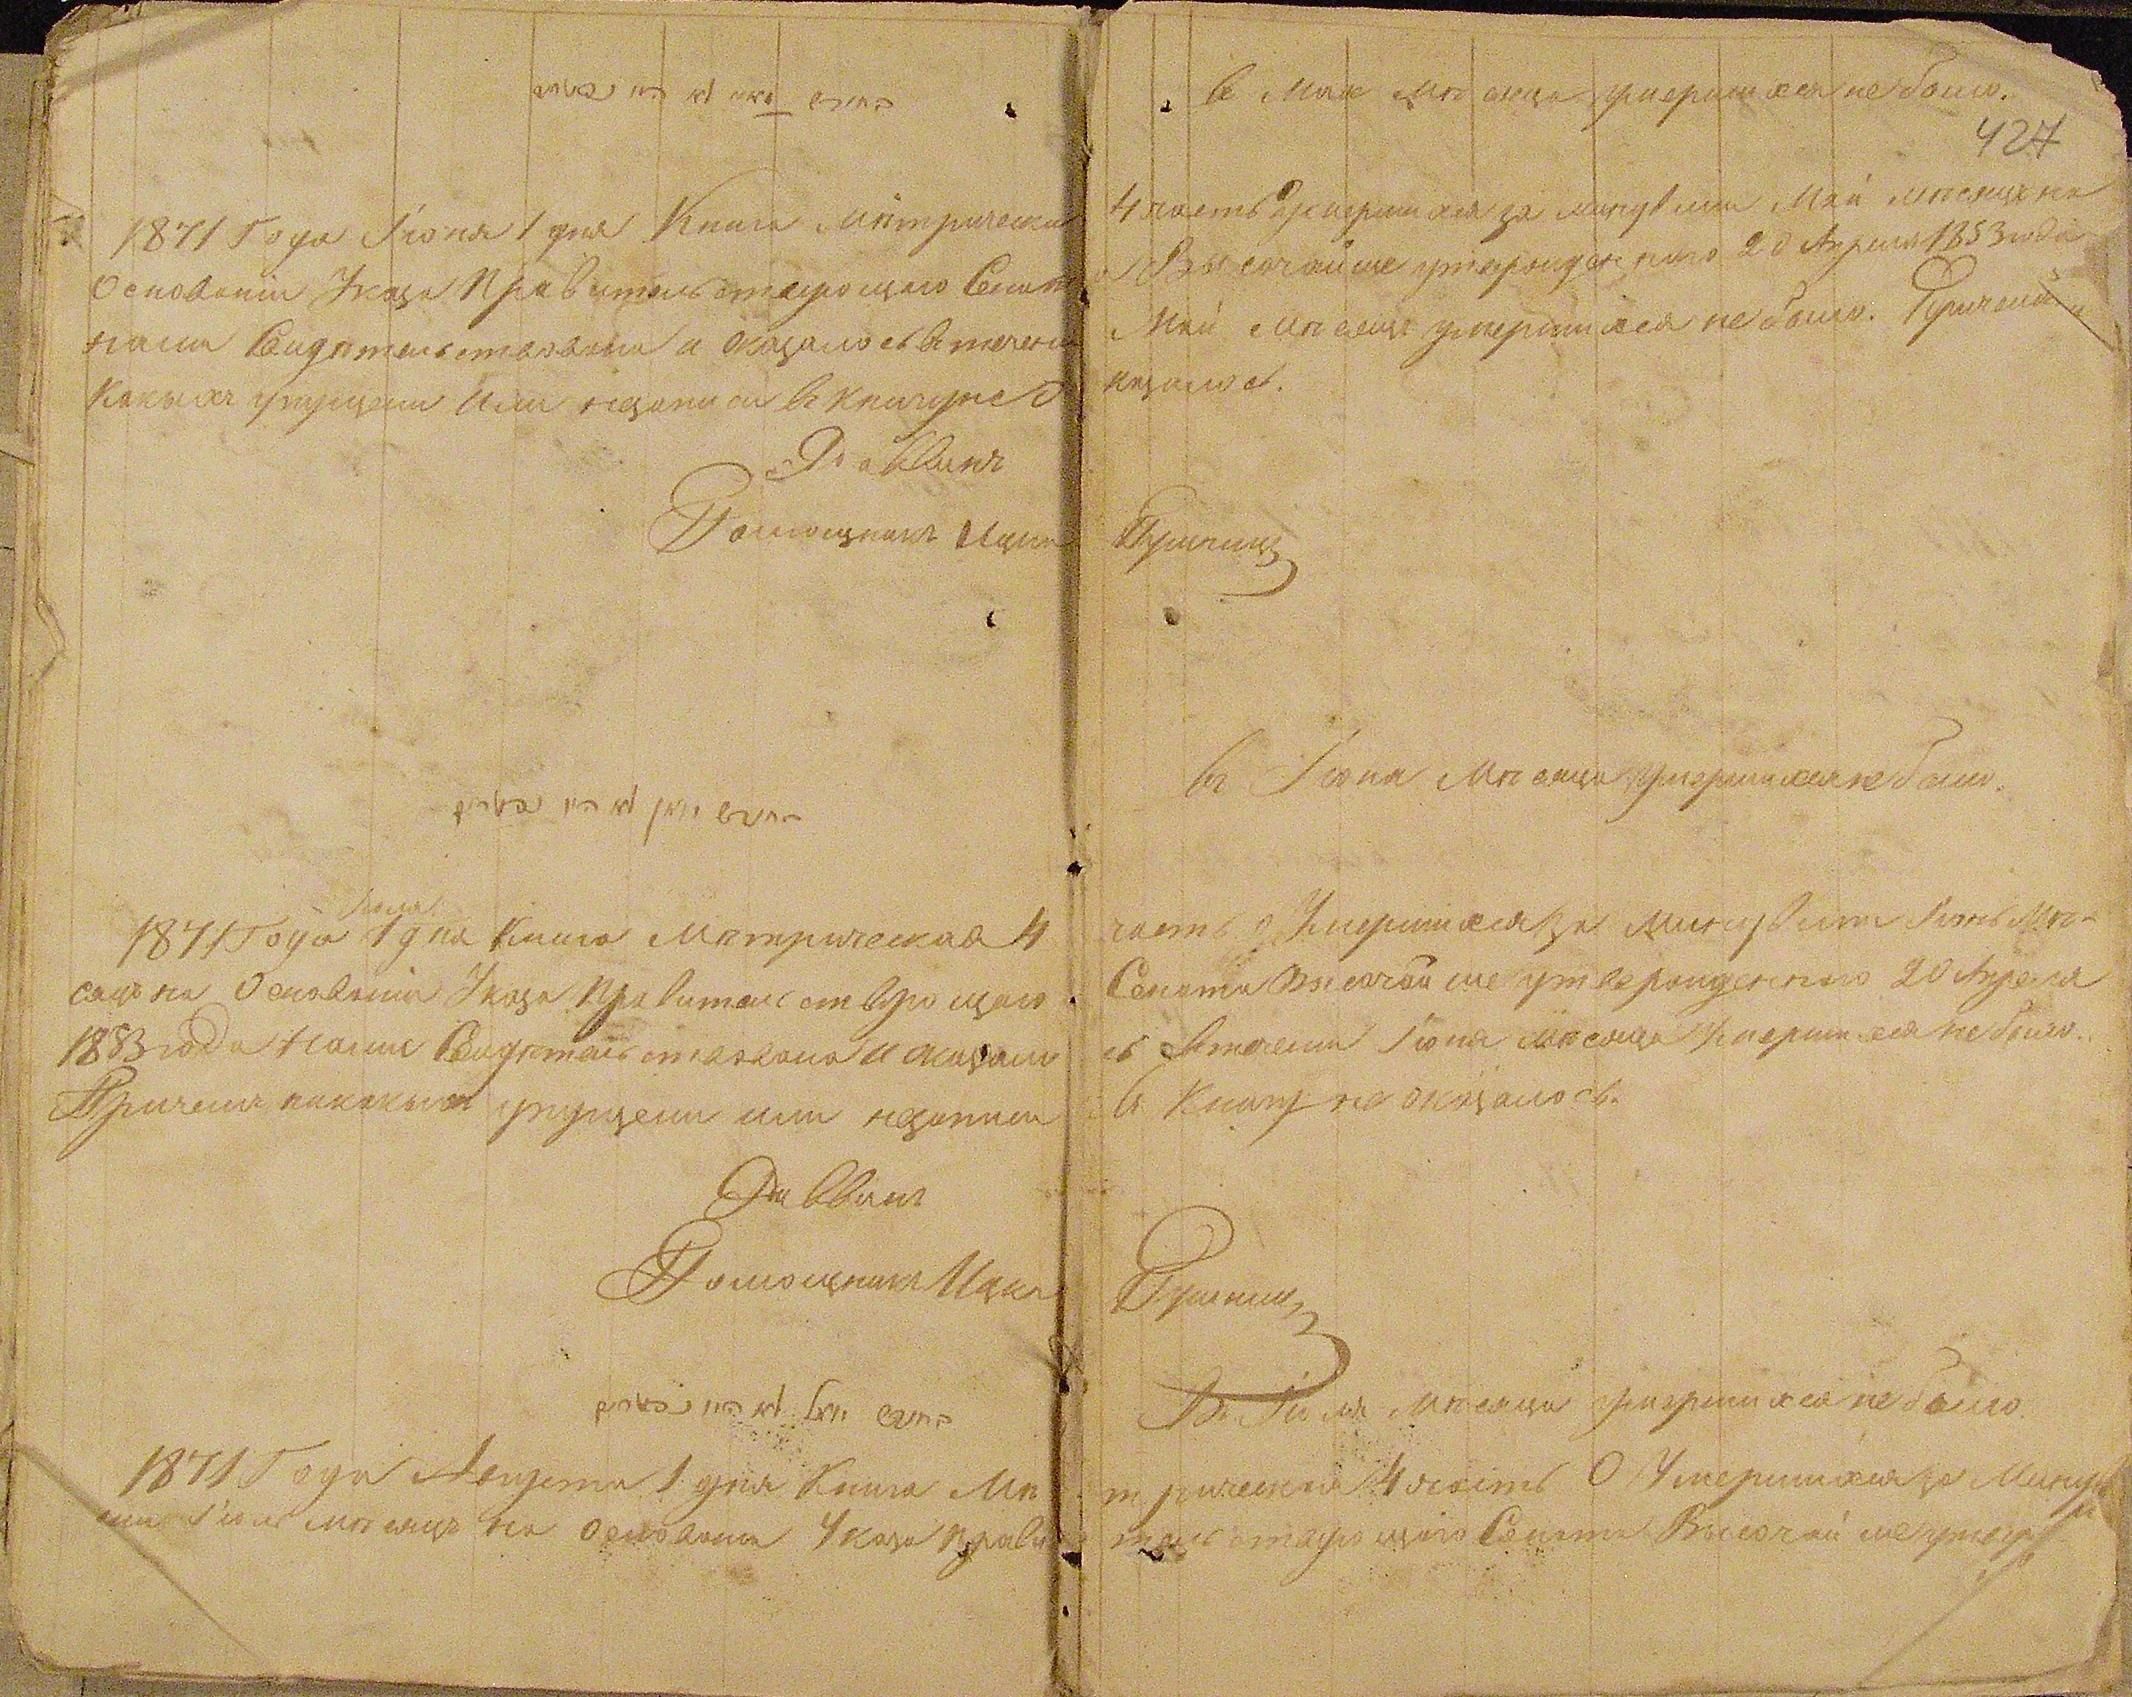 בחודש מאי לא היו נפטרים
въ Маѣ мѣсяца умершихся не было.
427
1871 Года Іюня 1 дня Книга Мѣтрическая 4 часть О умершихся за минувши Май мѣсяцъ на
Основаніи Указа Правительствующаго Сената Высочайше утвержденнаго 20 Апреля 1853 года
нами Свидѣтельствована и оказалось въ течени Май мѣсяцъ умершихся не было. Причемъ
какыхъ упущени или незаписи въ книгу не оказалось.
Раввинъ
Помощникъ Ицка
בחודש יואן לא היו נפטרים
въ Іюня Мѣсяца умершихся не было.
Іюля
1871 Года 1 дня Книга Мѣтрическая 4 часть о Умершихся за минувши Іюнь Мѣ-
сяцъ на Основаніи Указа Правительствующаго Сената Высочайше утвержденнаго 20 Апреля
1883 года Нами Свидѣтельствована и оказалось въ течении Іюня мѣсяца Умершихся не было.
Причемъ никакыхъ упущени или незаписи въ Книгу не оказалось.
Раввинъ
Помощникъ Ицка
בחודש יואל לא היו נפטרים
Въ Іюля мѣсяца умершихся не было.
1871 Года Августа 1 дня Книга Мѣтрическая 4 часть О Умершихся за Минув
ши Іюль мѣсяцъ на основани Указа Правительствующаго Сената Высочайше утвер